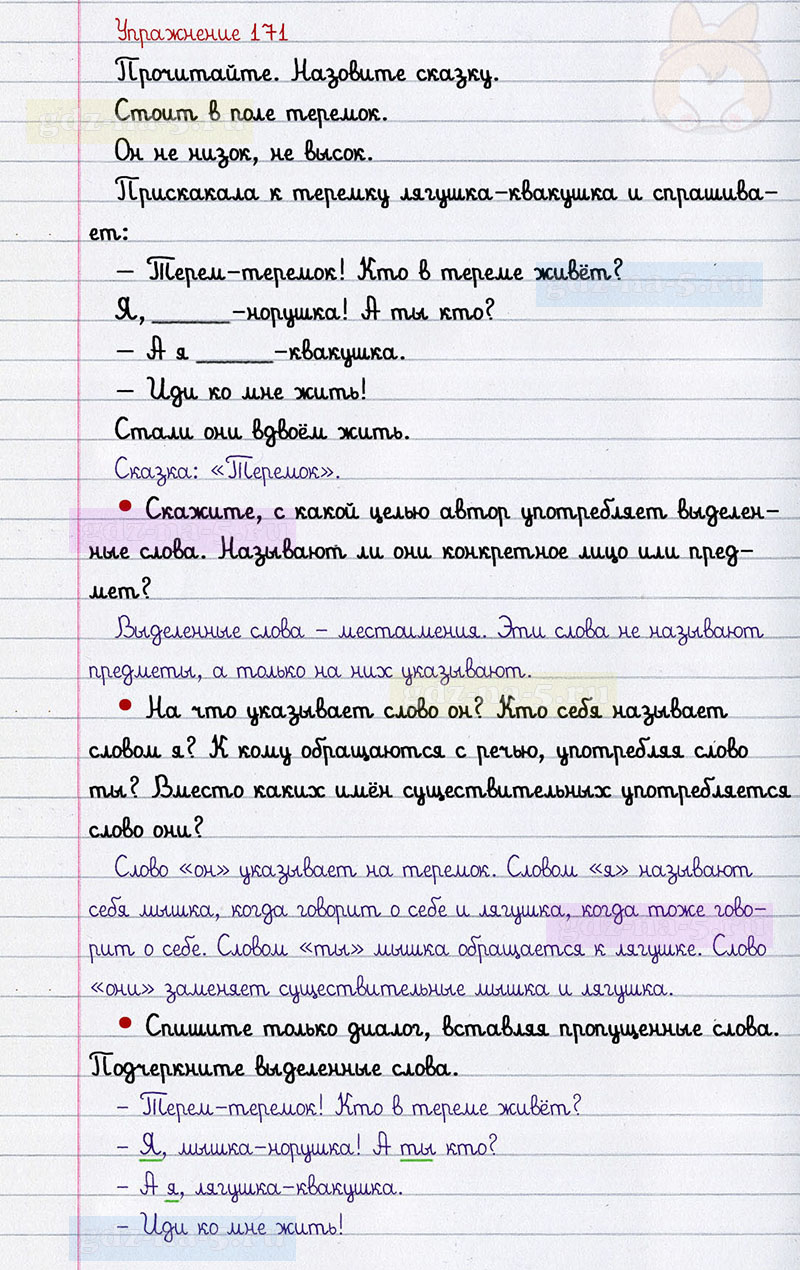 Упражнение 171
Прочитайте. Назовите сказку.
Стоит в поле теремок.
Он не низок, не высок.
Прискакала к теремку лягушка-квакушка и спрашива-
ет:
– Терем-теремок! Кто в тереме живёт?
Я, ______-норушка! А ты кто?
– А я ______-квакушка.
– Иди ко мне жить!
Стали они вдвоём жить.
Сказка: «Теремок».
• Скажите, с какой целью автор употребляет выделен-
ные слова. Называют ли они конкретное лицо или пред-
мет?
Выделенные слова – местоимения. Эти слова не называют
предметы, а только на них указывают.
• На что указывает слово он? Кто себя называет
словом я? К кому обращаются с речью, употребляя слово
ты? Вместо каких имён существительных употребляется
слово они?
Слово «он» указывает на теремок. Словом «я» называют
себя мышка, когда говорит о себе и лягушка, когда тоже гово-
рит о себе. Словом «ты» мышка обращается к лягушке. Слово
«они» заменяет существительные мышка и лягушка.
• Спишите только диалог, вставляя пропущенные слова.
Подчеркните выделенные слова.
– Терем-теремок! Кто в тереме живёт?
– Я, мышка-норушка! А ты кто?
– А я, лягушка-квакушка.
– Иди ко мне жить!
gdz-na-5.ru
gdz-na-5.ru
gdz-na-5.ru
gdz-na-5.ru
gdz-na-5.ru
gdz-na-5.ru